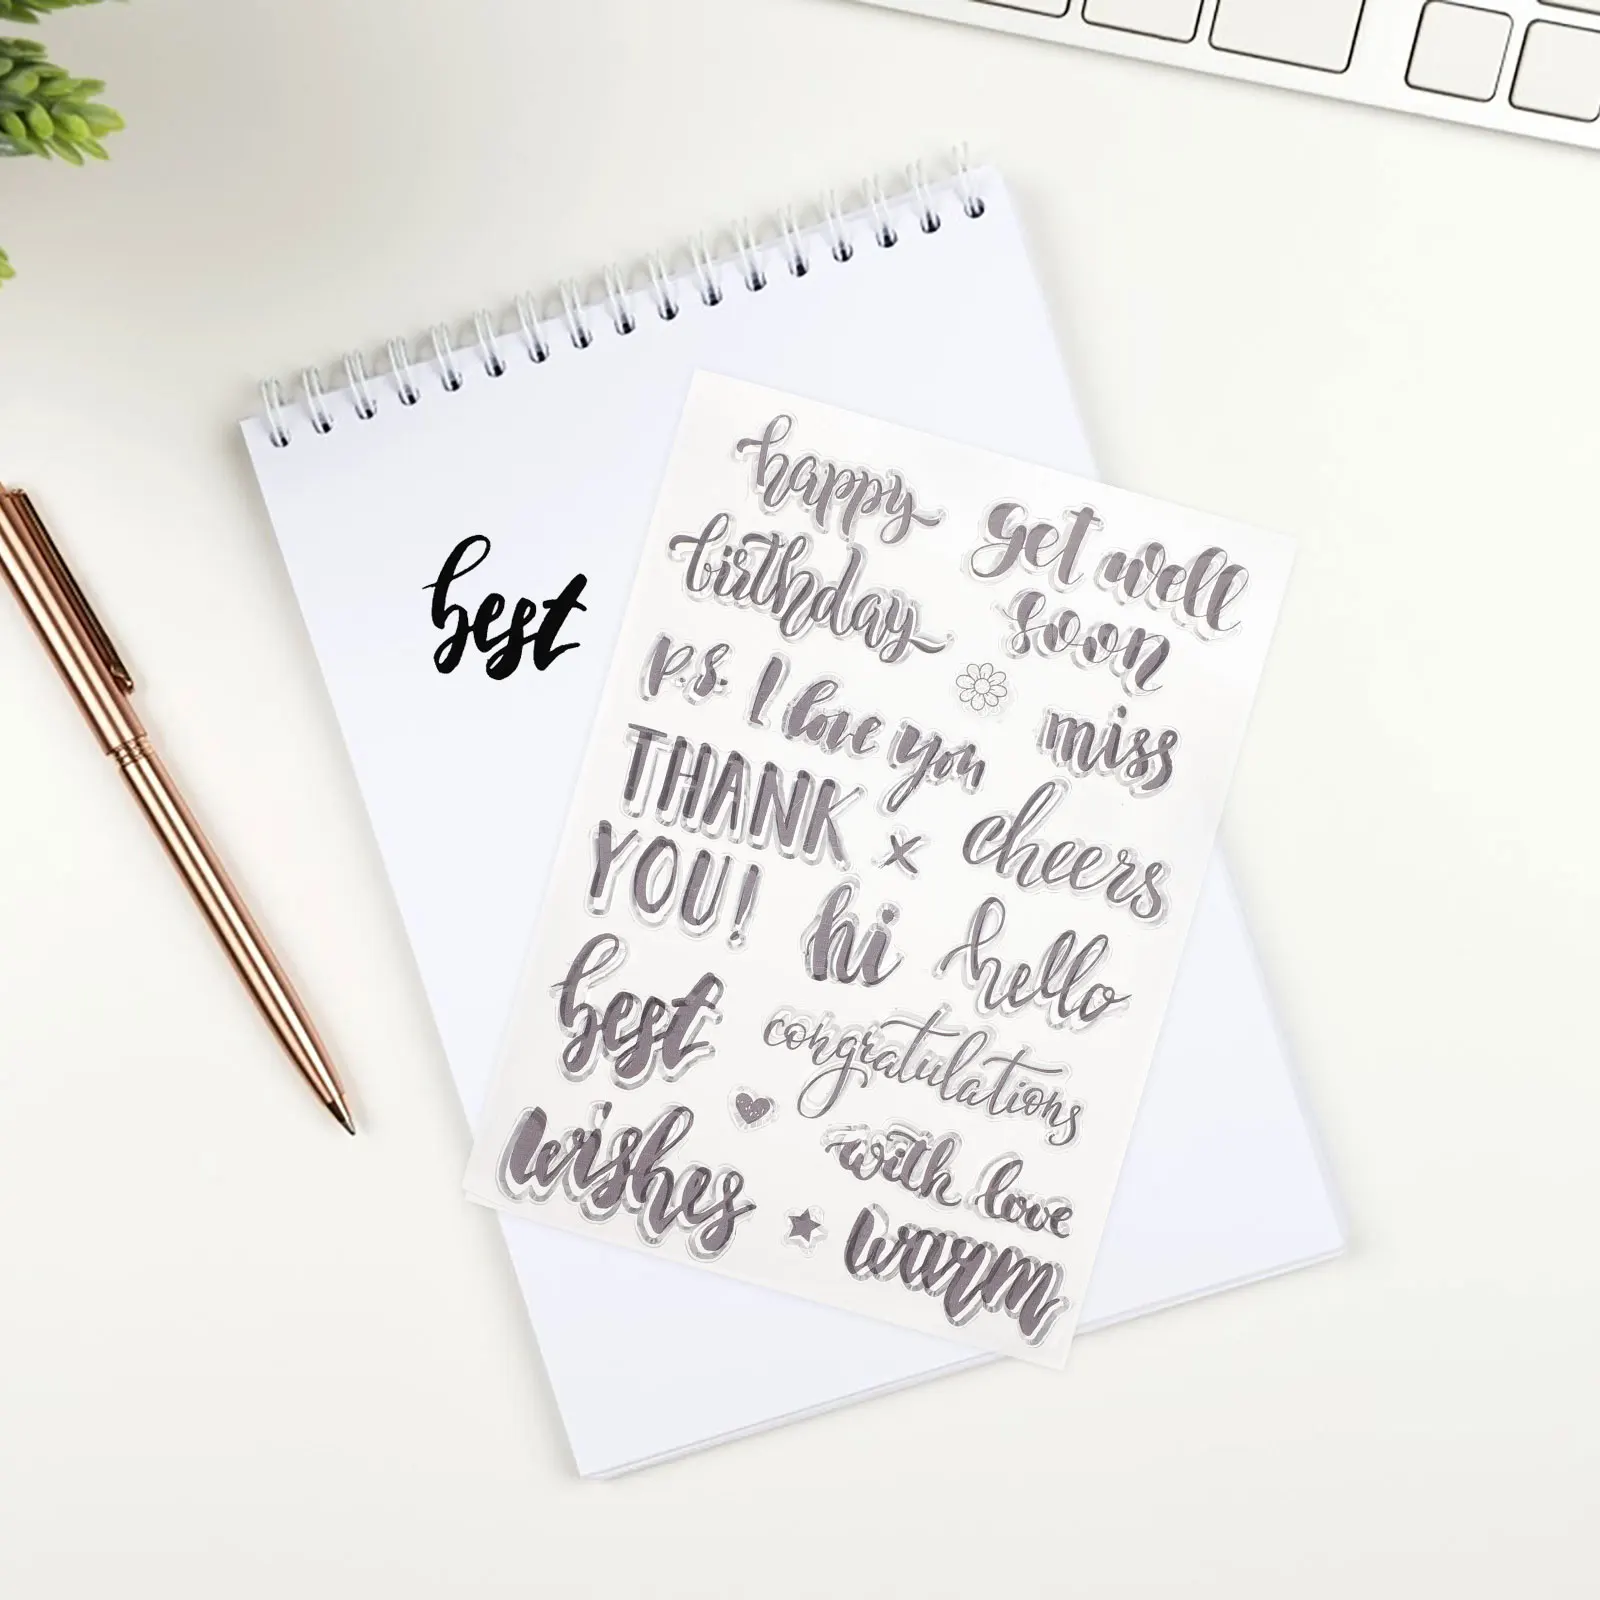 best
happy
birthday
get well
soon
p.s. I love you
miss
THANK
YOU!
x
cheers
hi
hello
best
wishes
congratulations
with love
warm